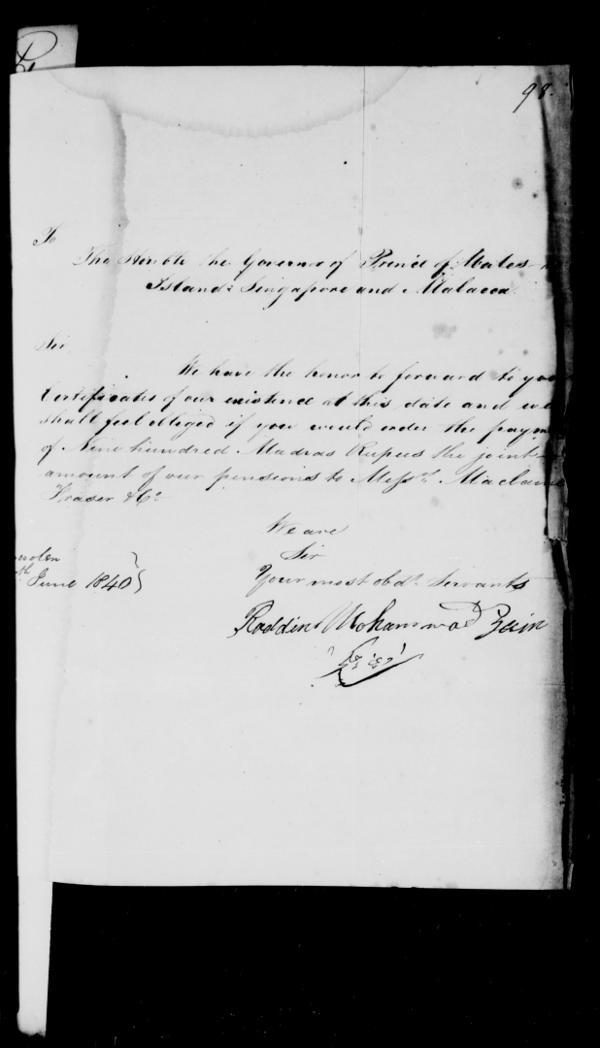 98.
To
The Honble the Governor of Prince of Wales
Island: Singapore and Malacca.
Sir
We have the honor to forward to you
Certificates of our existence at this date and we
shall feel obliged if you would order the paym
of Nine hundred Madras Rupees the joint
amount of our pensions to Messrs. Maclaine
Fraser & Co.
We are
Sir
Your most obdt. Servants
coolen
th June 1840
Raddin Mohammad Zain